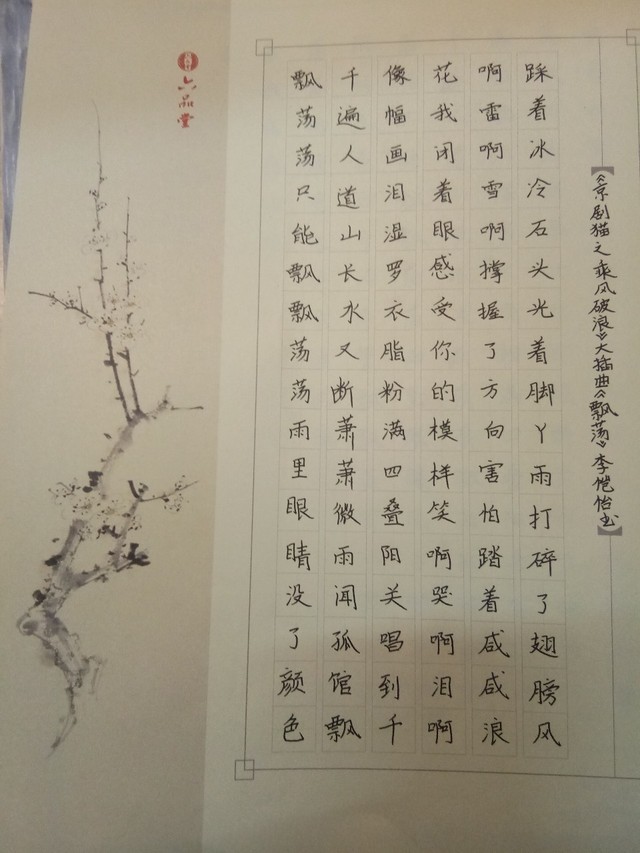 【《京剧猫之乘风破浪》大插曲《飘荡》李恺怡书】
踩着冰冷石头光着脚丫雨打碎了翅膀风
啊雷啊雪啊撑握了方向害怕踏着咸咸浪
花我闭着眼感受你的模样笑啊哭啊泪啊
像幅画泪湿罗衣脂粉满四叠阳关唱到千
千遍人道山长水又断萧萧微雨闻孤馆飘
飘荡荡只能飘飘荡荡雨里眼睛没了颜色
六品堂